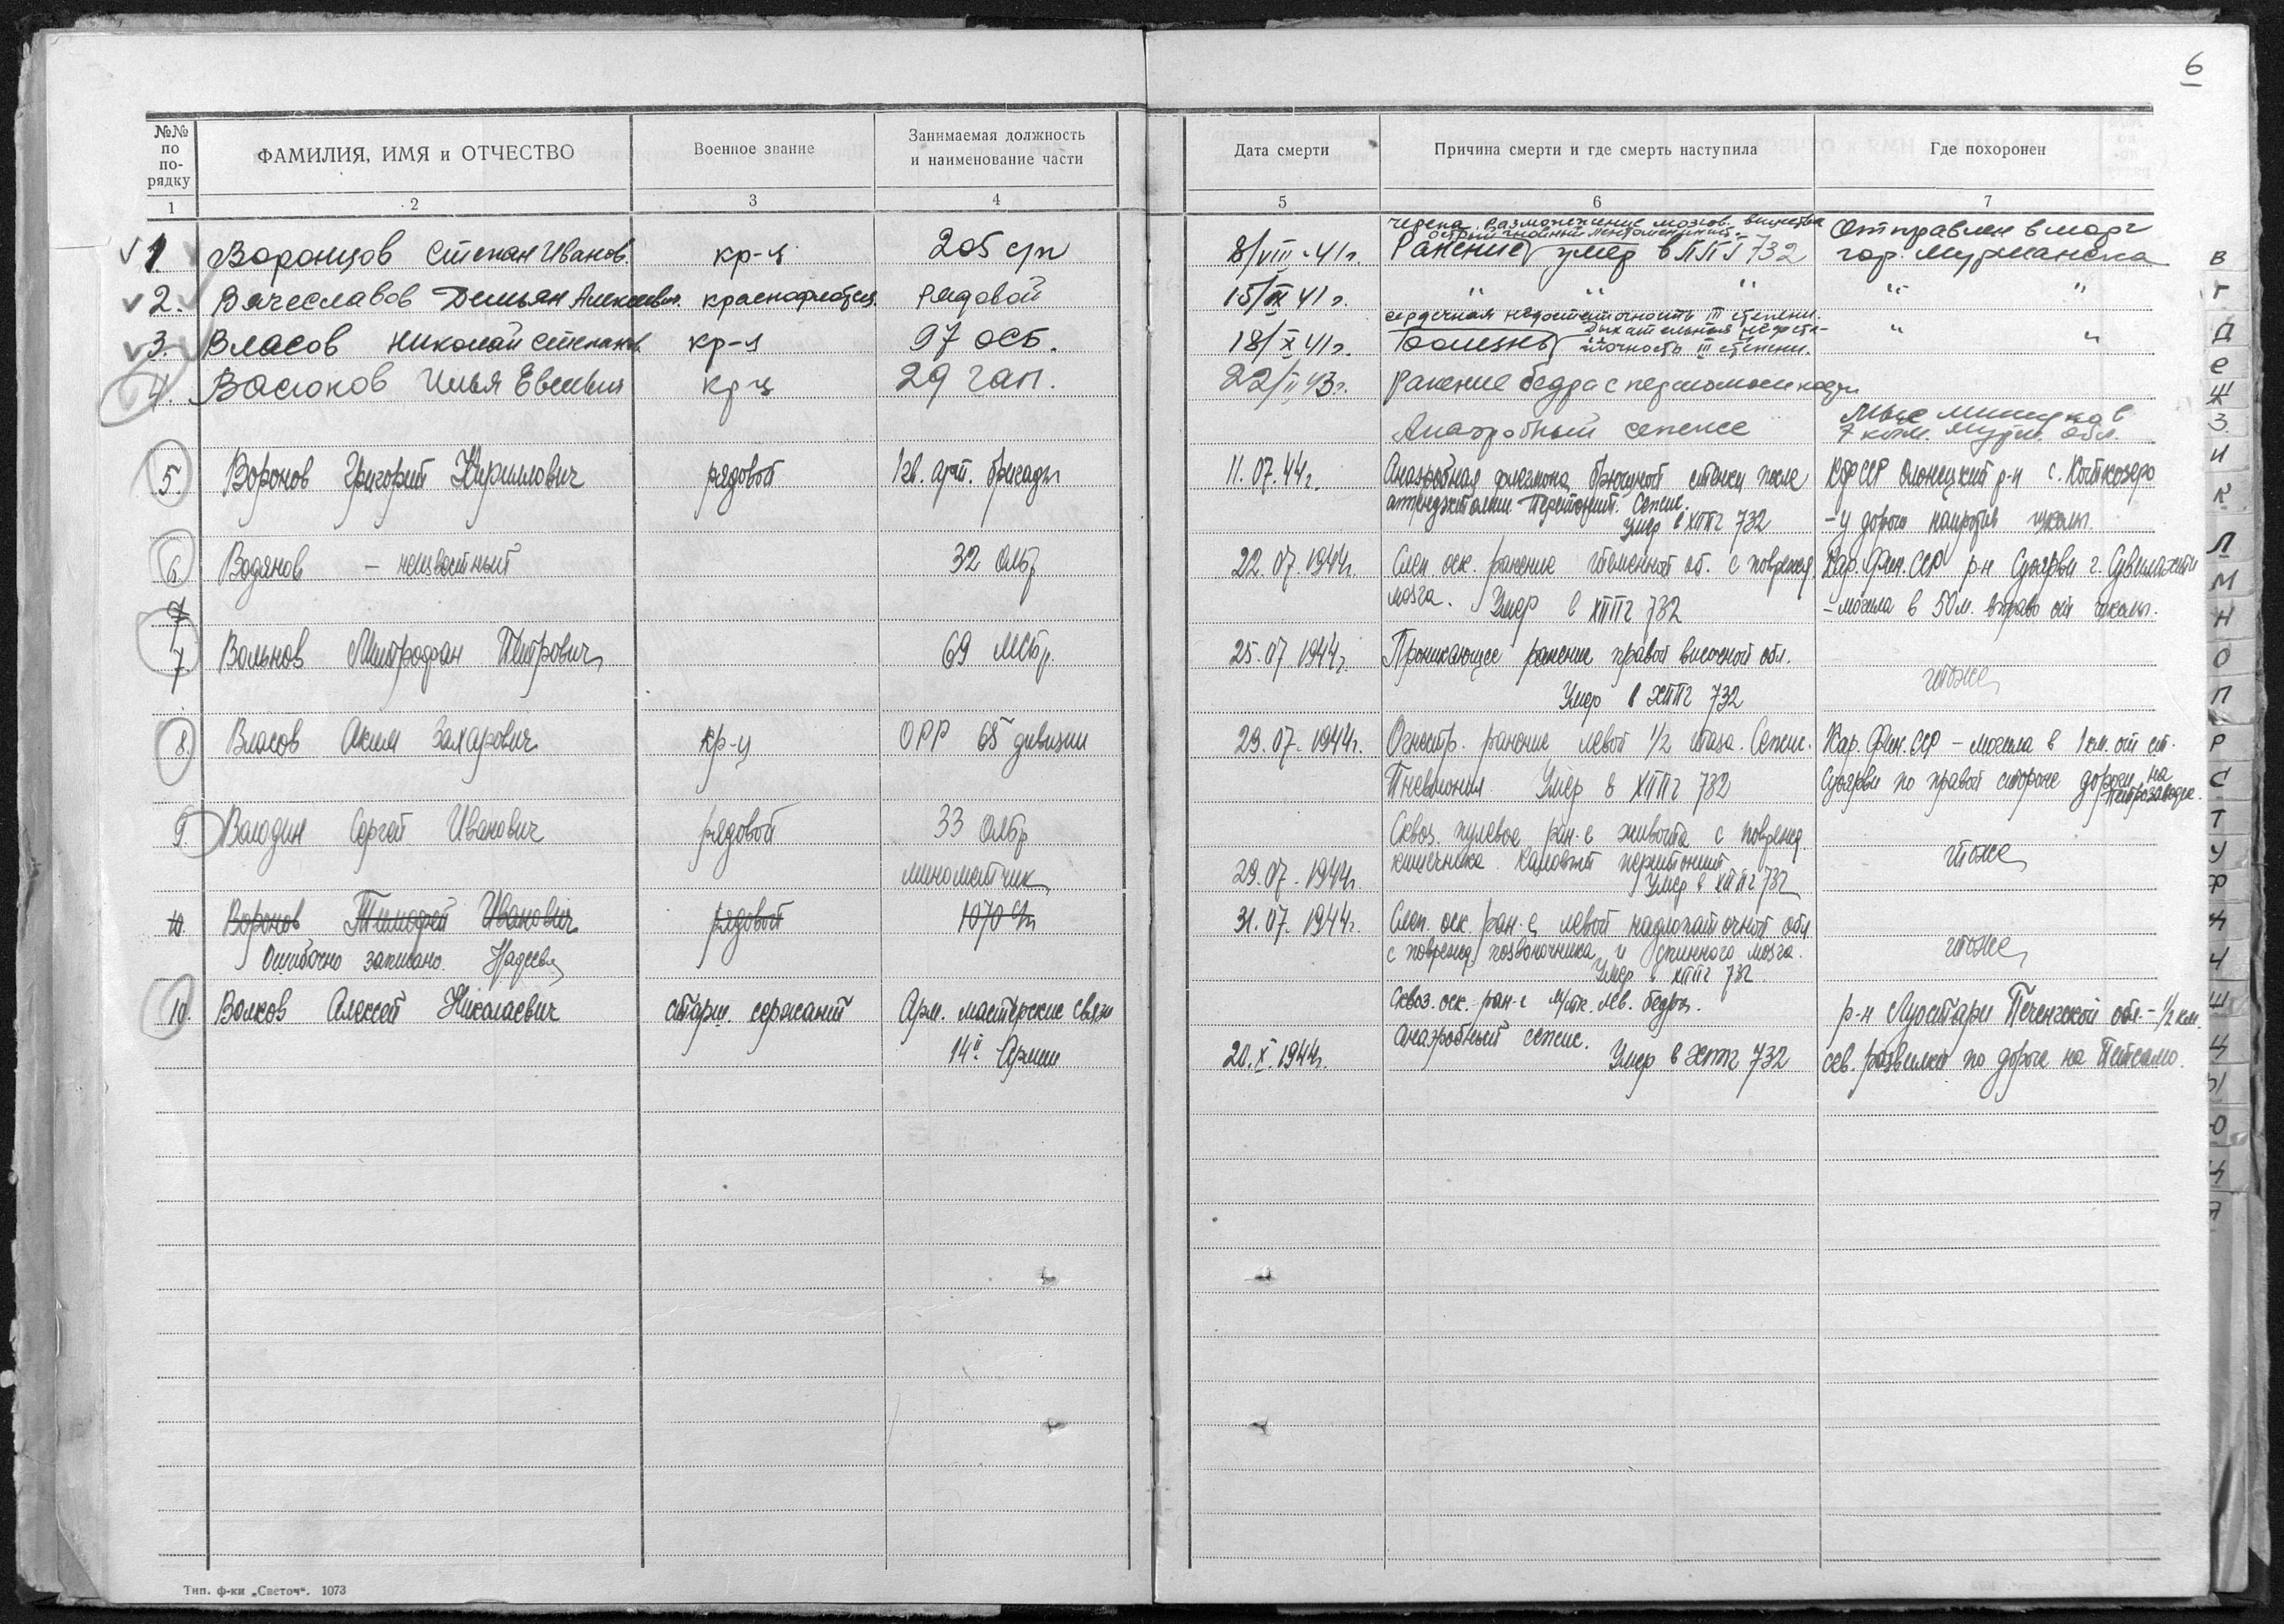 6
№№ по по-рядку
ФАМИЛИЯ, ИМЯ и ОТЧЕСТВО
Военное звание
Занимаемая должность и наименование части
Дата смерти
Причина смерти и где смерть наступила
Где похоронен
1 2 3 4 5 6 7
черепа. Размозжение мозгов. вещества
острый гнойный
1. Воронцов Степан Иванов. кр-ц 205 сп 8/VIII-41г. Ранение умер в ППГ 732 Отправлен в морг гор. Мурманска
2. Вячеславов Демьян Алексеевич. краснофлотец Рядовой 15/IX 41г. " " " " "
сердечная недостаточность III степени.
3. Власов Николай Степанов. кр-ц 97 осб. 18/X 41г. Болезнь Дыхательная недоста-точность III степени. " "
4. Васюков Илья Евсеевич кр-ц 29 гап. 22/II 43г. Ранение бедра с переломом кости
Анаэробный сепсис Мыс Мишуков
7 клм. Мурм. обл.
5. Воронов Григорий Кириллович рядовой 1 гв. арт. бригады 11.07.44г. Анаэробная флегмона брюшной стенки после КФССР Олонецкий р-н с. Коткозеро
аппендэктомии. Перитонит. Сепсис.
Умер в ХППГ 732 - у дороги напротив школы.
6. Водянов - неизвестный 32 олбр 22.07.1944г. Слеп. оск. ранение теменной об. с поврежд. Кар. Фин. ССР р-н Суоярви г. Сувилахти
мозга. Умер в ХППГ 732 - могила в 50 м. вправо от школы.
7
7 Вольнов Митрофан Петрович 69 МСбр. 25.07.1944г. Проникающее ранение правой височной обл.
Умер в ХППГ 732 тоже
8. Власов Аким Захарович кр-ц ОРР 65 дивизии 29.07.1944г. Огнестр. ранение левой 1/2 таза. Сепсис. Кар. Фин. ССР - могила в 1 км. от ст.
Пневмония. Умер в ХППГ 732 Суоярви по правой стороне дороги на Петрозаводск.
9. Володин Сергей Иванович рядовой 33 олбр Сквоз. пулевое ран-е живота с поврежд.
минометчик 29.07.1944г. кишечника. Каловый перитонит. тоже
Умер в ХППГ 732
10. Воронов Тимофей Иванович рядовой 1070 сп 31.07.1944г. Слеп. оск. ран-е левой надлопаточной обл.
Ошибочно записано. с поврежд. позвоночника и спинного мозга. тоже
Умер в ХППГ 732
10. Волков Алексей Николаевич старш. сержант Арм. мастерские связи Сквоз. оск. ран-е м/тк. лев. бедра. р-н Луостари Печенгской обл. - 1/2 км.
14й Армии 20.X.1944г. Анаэробный сепсис. Умер в ХППГ 732 сев. развилки по дороге на Петсамо.
В
Г
Д
Е
Ж
З
И
К
Л
М
Н
О
П
Р
С
Т
У
Ф
Ч
Ш
Щ
Ю
Тип. ф-ки „Светоч“. 1073